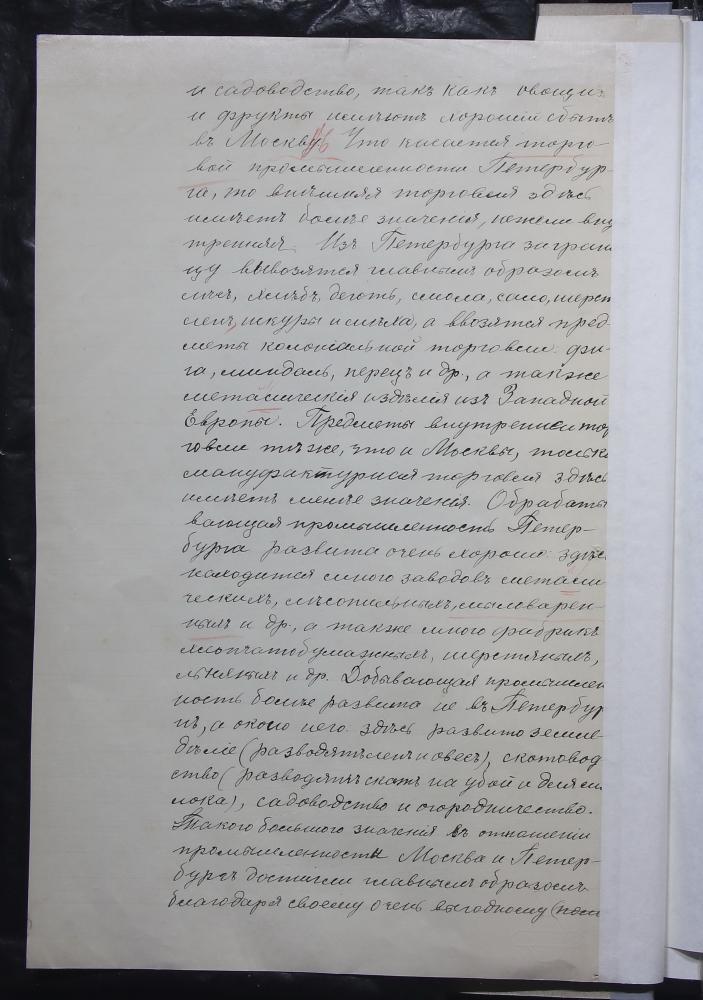 и садоводство, такъ какъ овощи
и фрукты имѣютъ хорошій сбытъ
въ Москву. Что касается торго-
вой промышленности Петербур-
га, то внѣшняя торговля здѣсь
имѣетъ болѣе значенія, нежели вну
тренняя. Изъ Петербурга заграни
цу вывозятся главнымъ образомъ
лѣсъ, хлѣбъ, деготь, смола, сало, шерст
ленъ, шкуры и мѣха, а ввозятся пред-
меты колоніальной торговли: фи-
га, миндаль, перецъ и др., а также
металическія издѣлія изъ Западной
Европы. Предметы внутренней тор
говли тѣ же, что и Москвы, только
мануфактурная торговля здѣсь
имѣетъ менѣе значенія. Обрабаты
вающая промышленность Петер-
бурга развита очень хорошо: здѣсь
находится много заводовъ метали
ческихъ, лѣсопильныхъ, мыловарен-
ныхъ и др., а также много фабрикъ
хлопчатобумажныхъ, шерстяныхъ,
льняныхъ и др. Добывающая промышлен
ность болѣе развита не въ Петербур
гѣ, а около него: здѣсь развито земле-
дѣліе (разводятъ ленъ и овесъ), скотовод
ство (разводятъ скотъ на убой и для мо
лока), садоводство и огородничество.
Такого большого значенія въ отношеніи
промышленности Москва и Петер-
бургъ достигли главнымъ образомъ
благодаря своему очень выгодному (поли